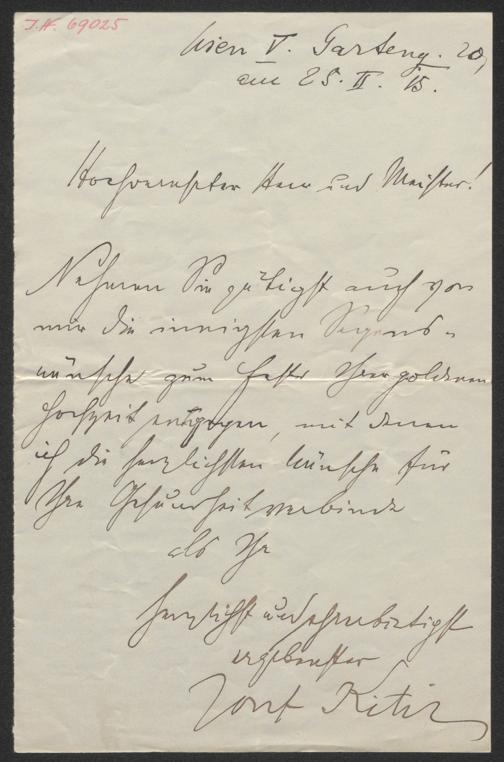 J.N. 69025
Wien V. Garteng. 20,
am 25. II. 15.
Hochverehrter Herr und Meister!
Nehmen Sie gütigst auch von
mir die innigsten Segens-
wünsche zum Feste Ihrer goldenen
Hochzeit entgegen, mit denen
ich die herzlichsten Wünsche für
Ihre Gesundheit verbinde
als Ihr
herzlichst und ehrerbietigst
ergebenster
Josef Kitir